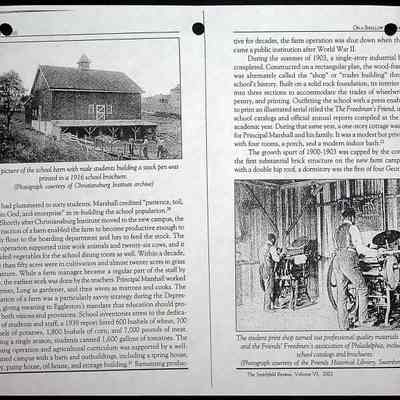 On a Shallow
picture of the school barn with male students building a stock pen was
printed in a 1916 school brochure.
(Photograph courtesy of Christiansburg Institute archive)
had plummeted to sixty students. Marshall credited "patience, toil,
in God, and enterprise" in re-building the school population.
Shortly after Christiansburg Institute moved to the new campus, the
truction of a barn enabled the farm to become productive enough to
ly floor to the boarding department and has to feed the stock. The
operation supported nine work animals and twenty-six cows, and it
ided vegetables for the school dining room as well. Within a decade,
than fifty acres were in cultivation and almost twenty acres in grass
asture. While a farm manager became a regular part of the staff by
, the earliest work was done by the teachers. Principal Marshall worked
rpenter, Long as gardener, and their wives as matrons and cooks. The
ration of a farm was a particularly savvy strategy during the Depres-
, giving meaning to Eggleston's mandate that education should pro-
both visions and provisions. School inventories attest to the dedica-
of students and staff; a 1939 report listed 600 bushels of wheat, 700
els of potatoes, 1,800 bushels of corn, and 7,000 pounds of meat.
ing a single season, students canned 1,600 gallons of tomatoes. The
ing operation and agricultural curriculum was supported by a well-
ated campus with a barn and outbuildings, including a spring house,
ry, pump house, oil house, and storage building. Remaining produc-
tive for decades, the farm operation was shut down when th
came a public institution after World War II.
During the summer of 1903, a single-story industrial b
completed. Constructed on a rectangular plan, the wood-fram
was alternately called the "shop" or "trades building" thro
school's history. Built on a solid rock foundation, its interior
into three sections to accommodate the trades of wheelwr
pentry, and printing. Outfitting the school with a press enabl
to print an illustrated serial titled the The Freedmen's Friend, a
school catalogs and official annual reports compiled at the
academic year. During that same year, a one-story cottage was
for Principal Marshall and his family. It was a modest but priv
with four rooms, a porch, and a modern indoor bath.
The growth spurt of 1900-1903 was capped by the con
the first substantial brick structure on the new farm camp
with a double hip roof, a dormitory was the first of four Geor
The student print shop turned out professional quality materials
and the Friends' Freedmen's association of Philadelphia, includ
school catalogs and brochures.
(Photograph courtesy of the Friends Historical Library, Swarthm
The Smithfield Review, Volume VI, 2002